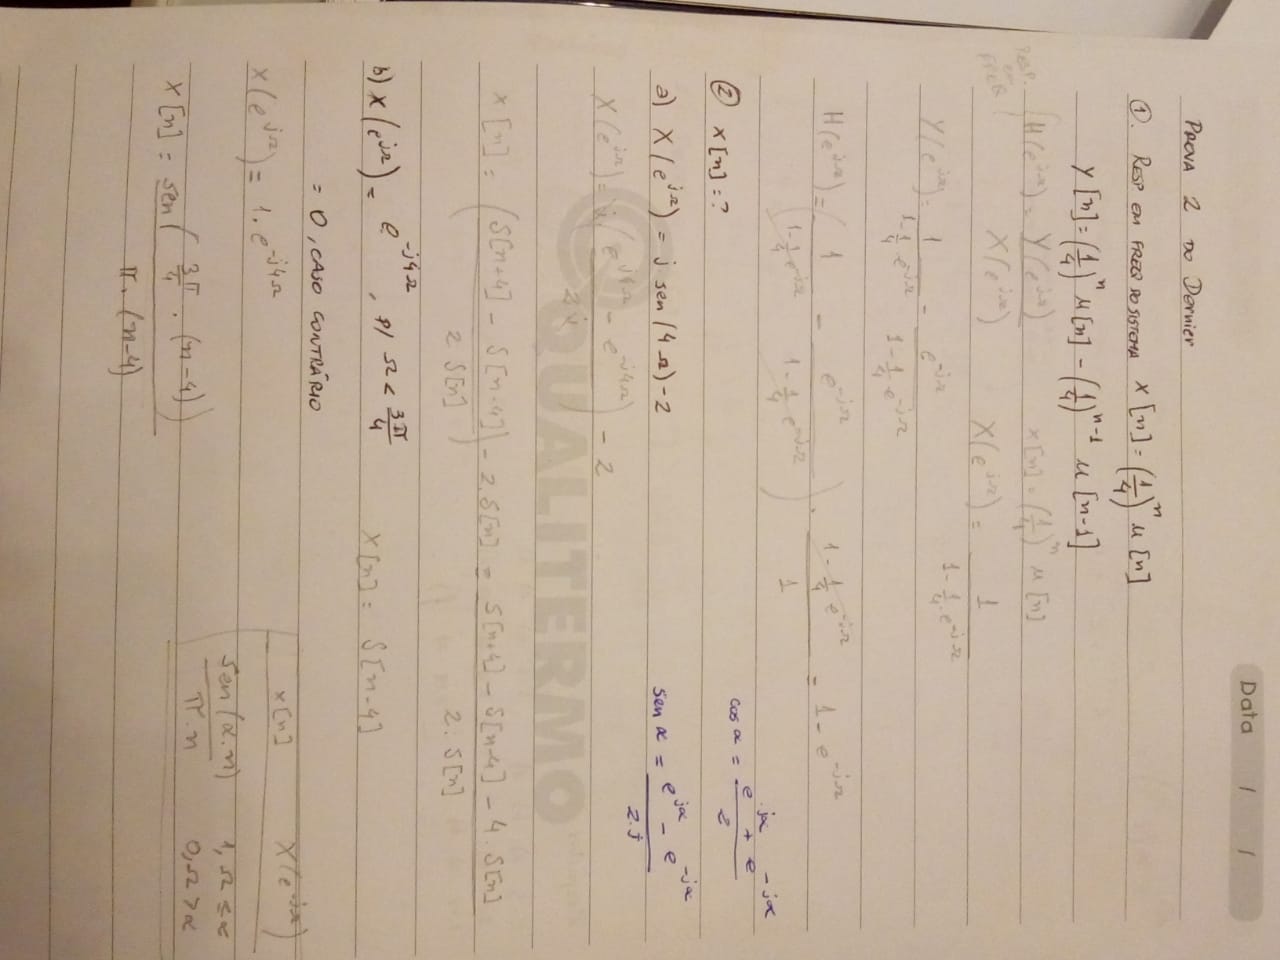 Data / /
PROVA 2 DO Dernier
①. RESP EM FREQ DO SISTEMA x[n] = (1/4)^n μ[n]
y[n] = (1/4)^n μ[n] - (1/4)^{n-1} μ[n-1]
RESP. EM FREQ { H(e^{jΩ}) = Y(e^{jΩ}) / X(e^{jΩ}) x[n] = (1/4)^n μ[n]
X(e^{jΩ}) = 1 / (1 - 1/4 · e^{-jΩ})
Y(e^{jΩ}) = 1 / (1 - 1/4 e^{-jΩ}) - e^{-jΩ} / (1 - 1/4 e^{-jΩ})
H(e^{jΩ}) = ( 1 / (1 - 1/4 e^{-jΩ}) - e^{-jΩ} / (1 - 1/4 e^{-jΩ}) ) · (1 - 1/4 e^{-jΩ}) / 1 = 1 - e^{-jΩ}
cos α = (e^{jα} + e^{-jα}) / 2
② x[n] = ?
a) X(e^{jΩ}) = j sen(4Ω) - 2
sen α = (e^{jα} - e^{-jα}) / 2.j
X(e^{jΩ}) = j (e^{j4Ω} - e^{-j4Ω}) / 2j - 2
QUALITERMO
x[n] = ( (δ[n+4] - δ[n-4]) - 2.δ[n] / 2 δ[n] ) = (δ[n+4] - δ[n-4] - 4.δ[n]) / 2. δ[n]
b) X(e^{jΩ}) = e^{-j4Ω}, p/ Ω < 3π/4 x[n] = δ[n-4]
= 0, CASO CONTRÁRIO
X(e^{jΩ}) = 1. e^{-j4Ω}
x[n] X(e^{jΩ})
sen(α.n) / π.n 1, Ω ≤ α
0, Ω > α
x[n] = sen( 3π/4 . (n-4) ) / π.(n-4)